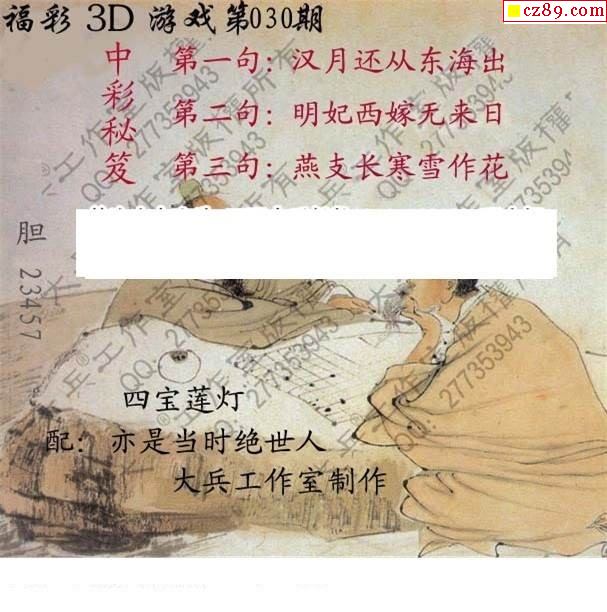 福彩 3D 游戏第030期
cz89.com
中彩秘笈
第一句：汉月还从东海出
第二句：明妃西嫁无来日
第三句：燕支长寒雪作花
胆 23457
四宝莲灯
配：亦是当时绝世人
大兵工作室制作
大兵®工作室版权所有
QQ：277353943